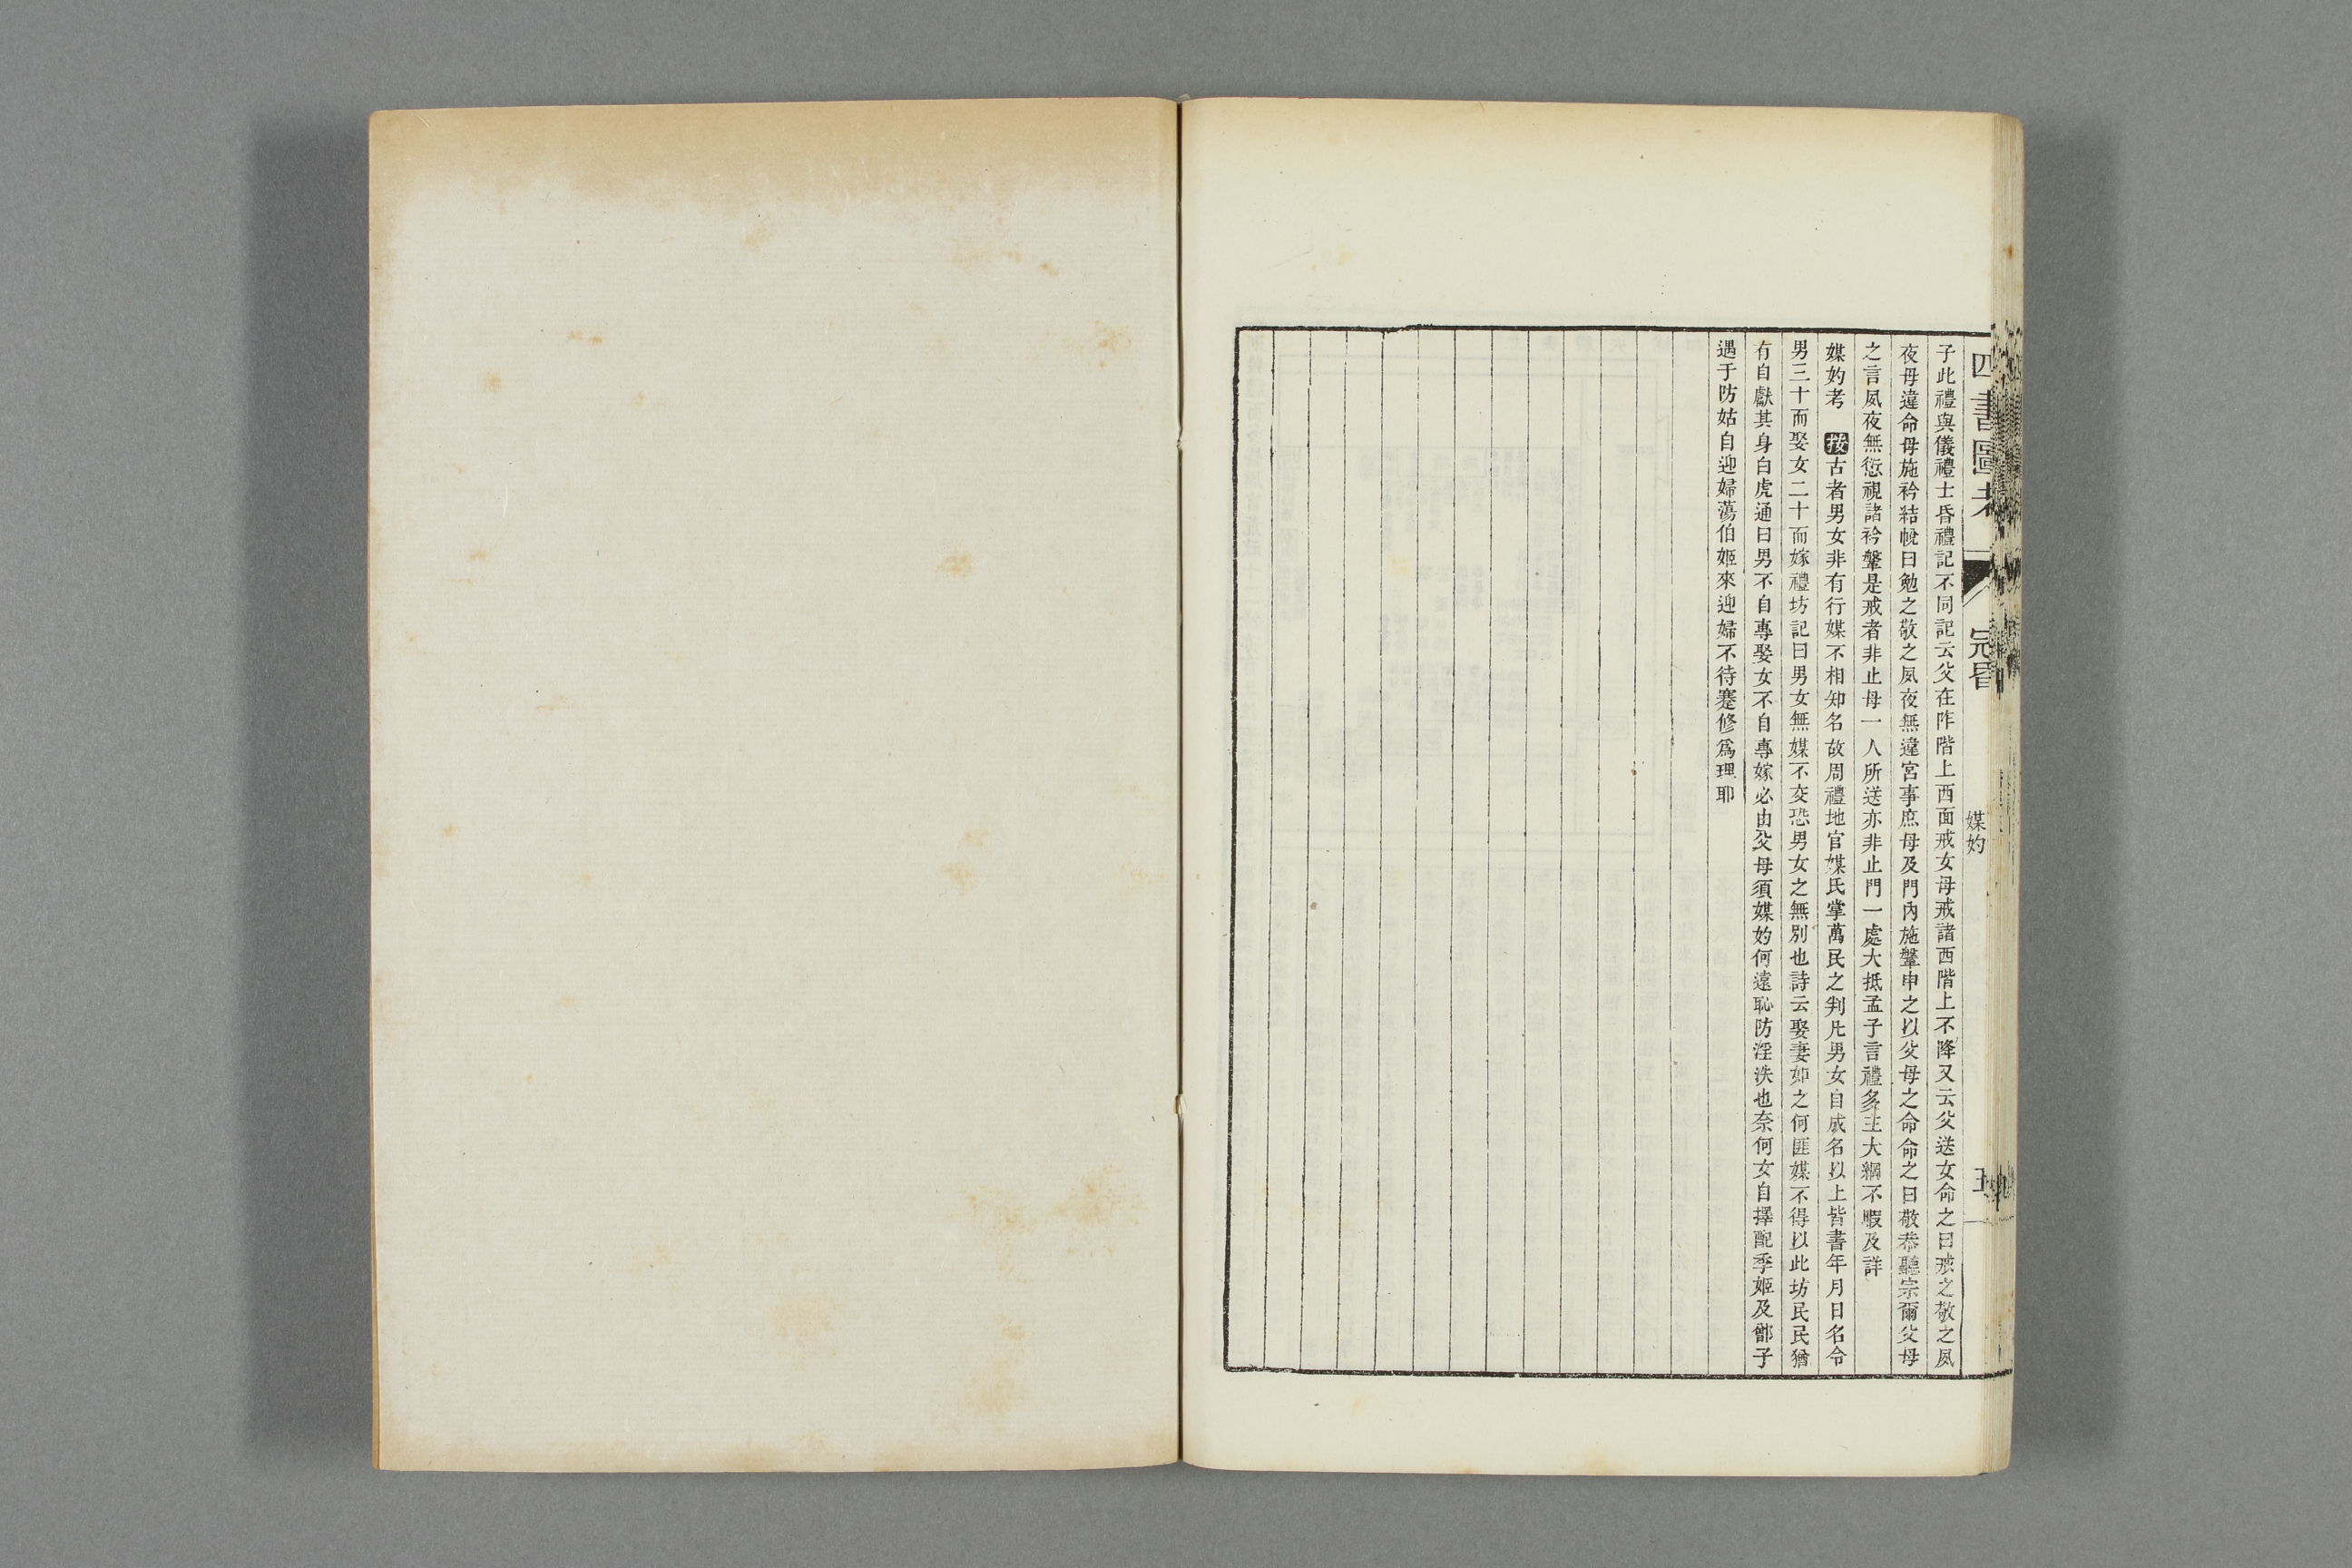 四書圖考
冠昏
媒妁
子此禮與儀禮士昏禮記不同記云父在阼階上西面戒女母戒諸西階上不降又云父送女命之曰戒之敬之夙
夜毋違命母施衿結帨曰勉之敬之夙夜無違宮事庶母及門內施鞶申之以父母之命命之曰敬恭聽宗爾父母
之言夙夜無愆視諸衿鞶是戒者非止母一人所送亦非止門一處大抵孟子言禮多主大綱不暇及詳
媒妁考 按古者男女非有行媒不相知名故周禮地官媒氏掌萬民之判凡男女自成名以上皆書年月日名令
男三十而娶女二十而嫁禮坊記曰男女無媒不交恐男女之無別也詩云娶妻如之何匪媒不得以此坊民民猶
有自獻其身白虎通曰男不自專娶女不自專嫁必由父母須媒妁何遠恥防淫泆也奈何女自擇配季姬及鄫子
遇于防姑自迎婦蕩伯姬來迎婦不待蹇修爲理耶